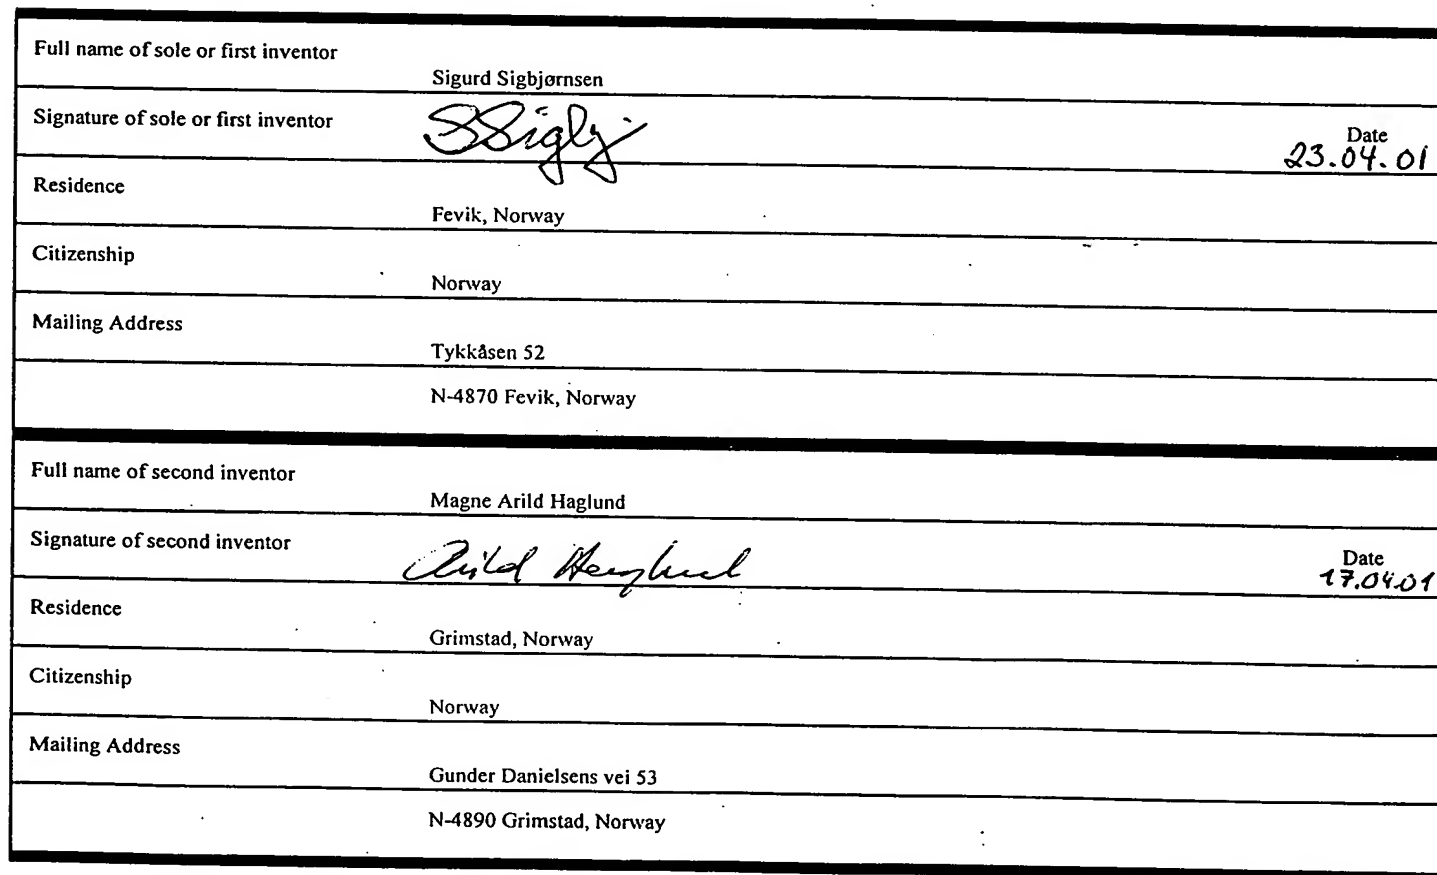 Full name of sole or first inventor
Sigurd Sigbjørnsen
Signature of sole or first inventor
SSigbj
Date
23.04.01
Residence
Fevik, Norway
Citizenship
Norway
Mailing Address
Tykkåsen 52
N-4870 Fevik, Norway
Full name of second inventor
Magne Arild Haglund
Signature of second inventor
Arild Haglund
Date
17.04.01
Residence
Grimstad, Norway
Citizenship
Norway
Mailing Address
Gunder Danielsens vei 53
N-4890 Grimstad, Norway